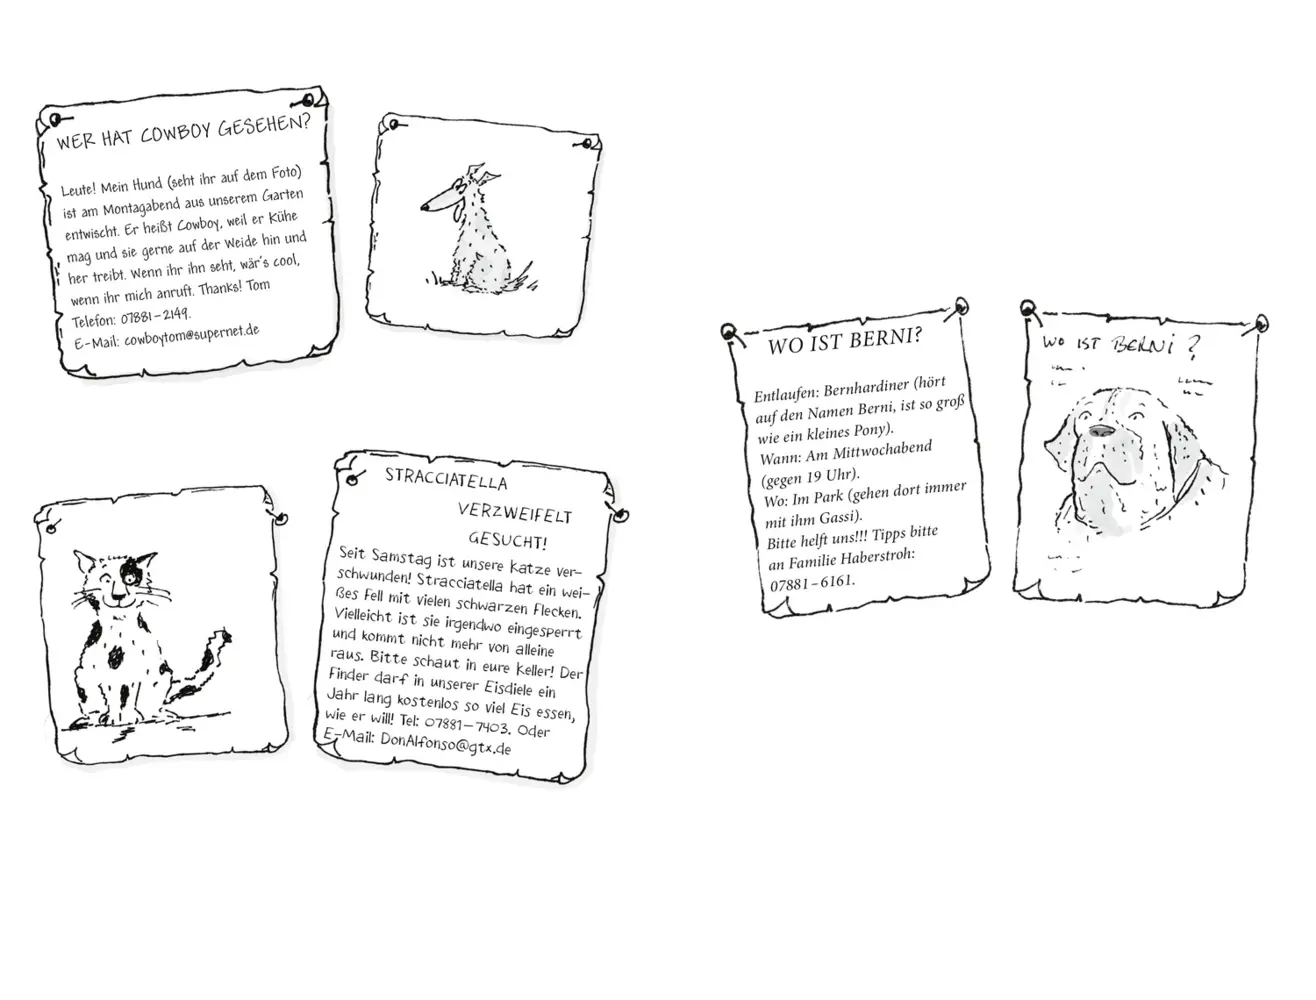 WER HAT COWBOY GESEHEN?
Leute! Mein Hund (seht ihr auf dem Foto)
ist am Montagabend aus unserem Garten
entwischt. Er heißt Cowboy, weil er Kühe
mag und sie gerne auf der Weide hin und
her treibt. Wenn ihr ihn seht, wär's cool,
wenn ihr mich anruft. Thanks! Tom
Telefon: 07881–2149.
E-Mail: cowboytom@supernet.de
STRACCIATELLA
VERZWEIFELT
GESUCHT!
Seit Samstag ist unsere Katze ver-
schwunden! Stracciatella hat ein wei-
ßes Fell mit vielen schwarzen Flecken.
Vielleicht ist sie irgendwo eingesperrt
und kommt nicht mehr von alleine
raus. Bitte schaut in eure Keller! Der
Finder darf in unserer Eisdiele ein
Jahr lang kostenlos so viel Eis essen,
wie er will! Tel: 07881–7403. Oder
E-Mail: DonAlfonso@gtx.de
WO IST BERNI?
Entlaufen: Bernhardiner (hört
auf den Namen Berni, ist so groß
wie ein kleines Pony).
Wann: Am Mittwochabend
(gegen 19 Uhr).
Wo: Im Park (gehen dort immer
mit ihm Gassi).
Bitte helft uns!!! Tipps bitte
an Familie Haberstroh:
07881–6161.
WO IST BERNI ?